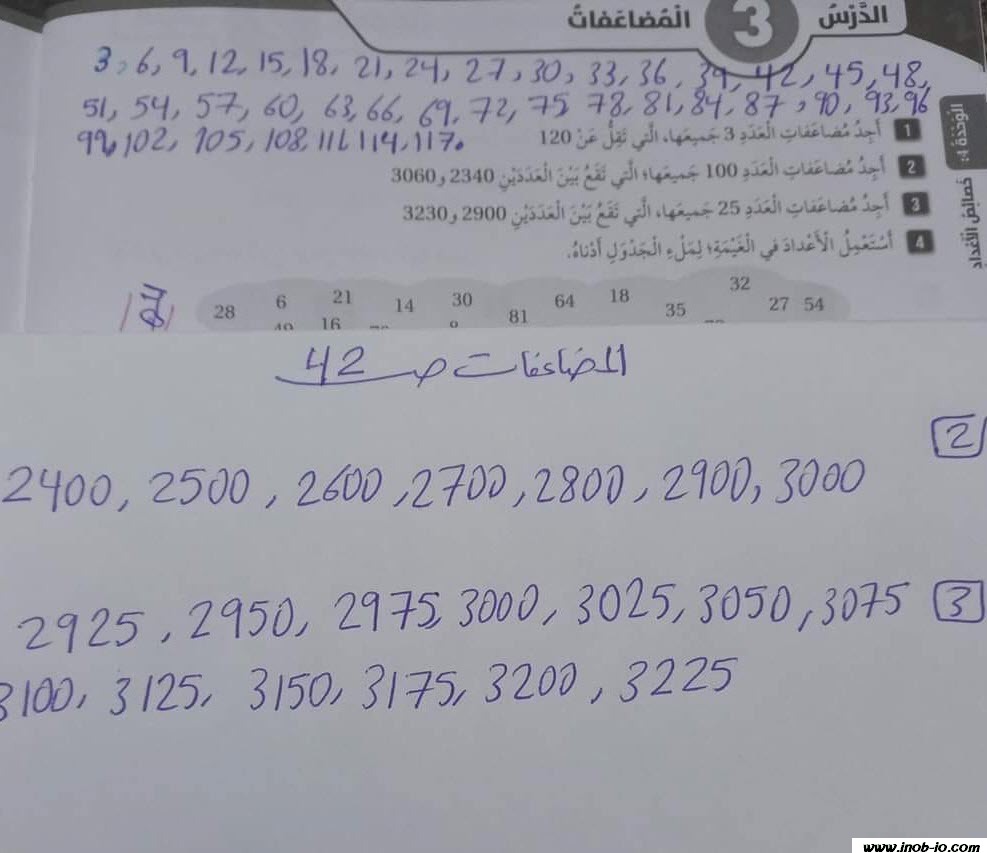 الدَّرْسُ 3 الْمُضاعَفاتُ
3, 6, 9, 12, 15, 18, 21, 24, 27, 30, 33, 36, 39, 42, 45, 48,
51, 54, 57, 60, 63, 66, 69, 72, 75 78, 81, 84, 87, 90, 93, 96
99, 102, 105, 108, 111, 114, 117.
1 أَجِدُ مُضاعَفاتِ الْعَدَدِ 3 جَميعَها، الَّتي تَقِلُّ عَنْ 120
2 أَجِدُ مُضاعَفاتِ الْعَدَدِ 100 جَميعَها؛ الَّتي تَقَعُ بَيْنَ الْعَدَدَيْنِ 2340 و 3060
3 أَجِدُ مُضاعَفاتِ الْعَدَدِ 25 جَميعَها، الَّتي تَقَعُ بَيْنَ الْعَدَدَيْنِ 2900 و 3230
4 أَسْتَعْمِلُ الْأَعْدادَ في الْغَيْمَةِ؛ لِمَلْءِ الْجَدْوَلِ أَدْناهُ.
الْوَحْدَةُ 4: خَصائِصُ الْأَعْدادِ
28 6 21 14 30 81 64 18 35 32 27 54
16
المضاعفات ص 42
2
2400, 2500, 2600, 2700, 2800, 2900, 3000
3
2925, 2950, 2975, 3000, 3025, 3050, 3075
3100, 3125, 3150, 3175, 3200, 3225
www.inob-io.com